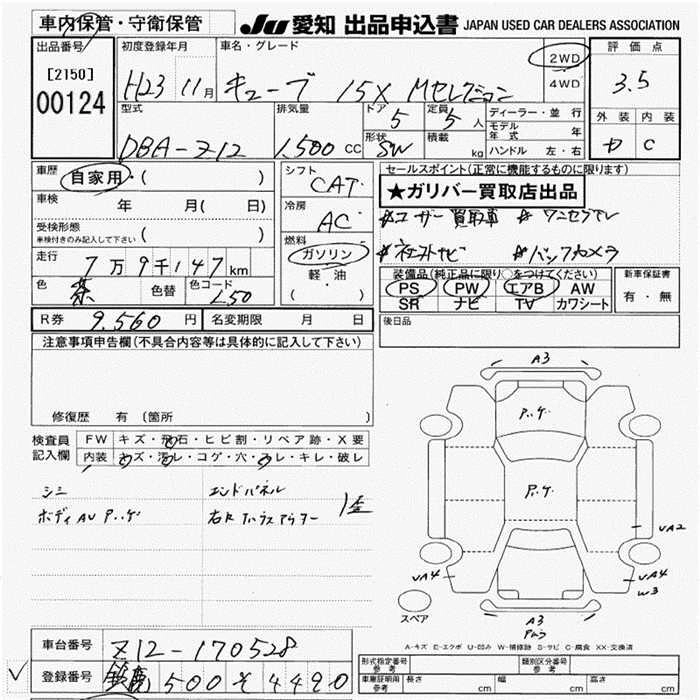 車内保管・守衛保管
JU 愛知 出品申込書 JAPAN USED CAR DEALERS ASSOCIATION
出品番号
[2150]
00124
初度登録年月
H23 11月
車名・グレード
キューブ 15X Mセレクション
2WD
4WD
評価点
3.5
外装 内装
C
型式
DBA-Z12
排気量
1.500 CC
ドア 5
定員 5 人
形状 SW
積載 kg
ディーラー・並行
モデル年式 年
ハンドル 左・右
車歴
自家用・( )
車検 年 月( 日)
受検形態
車検付きのみ記入して下さい ( )
走行
7万9千147km
色 茶 色替 色コード L50
シフト
CAT
冷房
AC
燃料
ガソリン
軽・油
( )
セールスポイント(正常に機能するものに限ります)
★ガリバー買取店出品
☆ユーザー買取車 ☆ワンセグTV
☆バックカメラ
装備品(純正品に限り○をつけてください)
PS PW エアB AW
SR ナビ TV カワシート
新車保証書
有・無
R券 9.560 円 名変期限 月 日
後日品
注意事項申告欄(不具合内容等は具体的に記入して下さい)
修復歴 有 (箇所
検査員
記入欄
FW キズ・飛石・ヒビ割・リペア跡・X要
内装 キズ・汚レ・コゲ・穴・スレ・キレ・破レ
シミ
ボディAU P.ゲ
エンドパネル
A3
P.ゲ
P.ゲ
UA2
UA4
UA4
W3
A3
スペア
A-キズ E-エクボ U-凹み W-補修跡 S-サビ C-腐食 XX-交換済
車台番号 Z12-170528
登録番号 鈴鹿 500 そ 4490
形式指定番号
参考
類別区分番号
参考
車庫証明用
参考
長さ cm 幅 cm 高さ cm